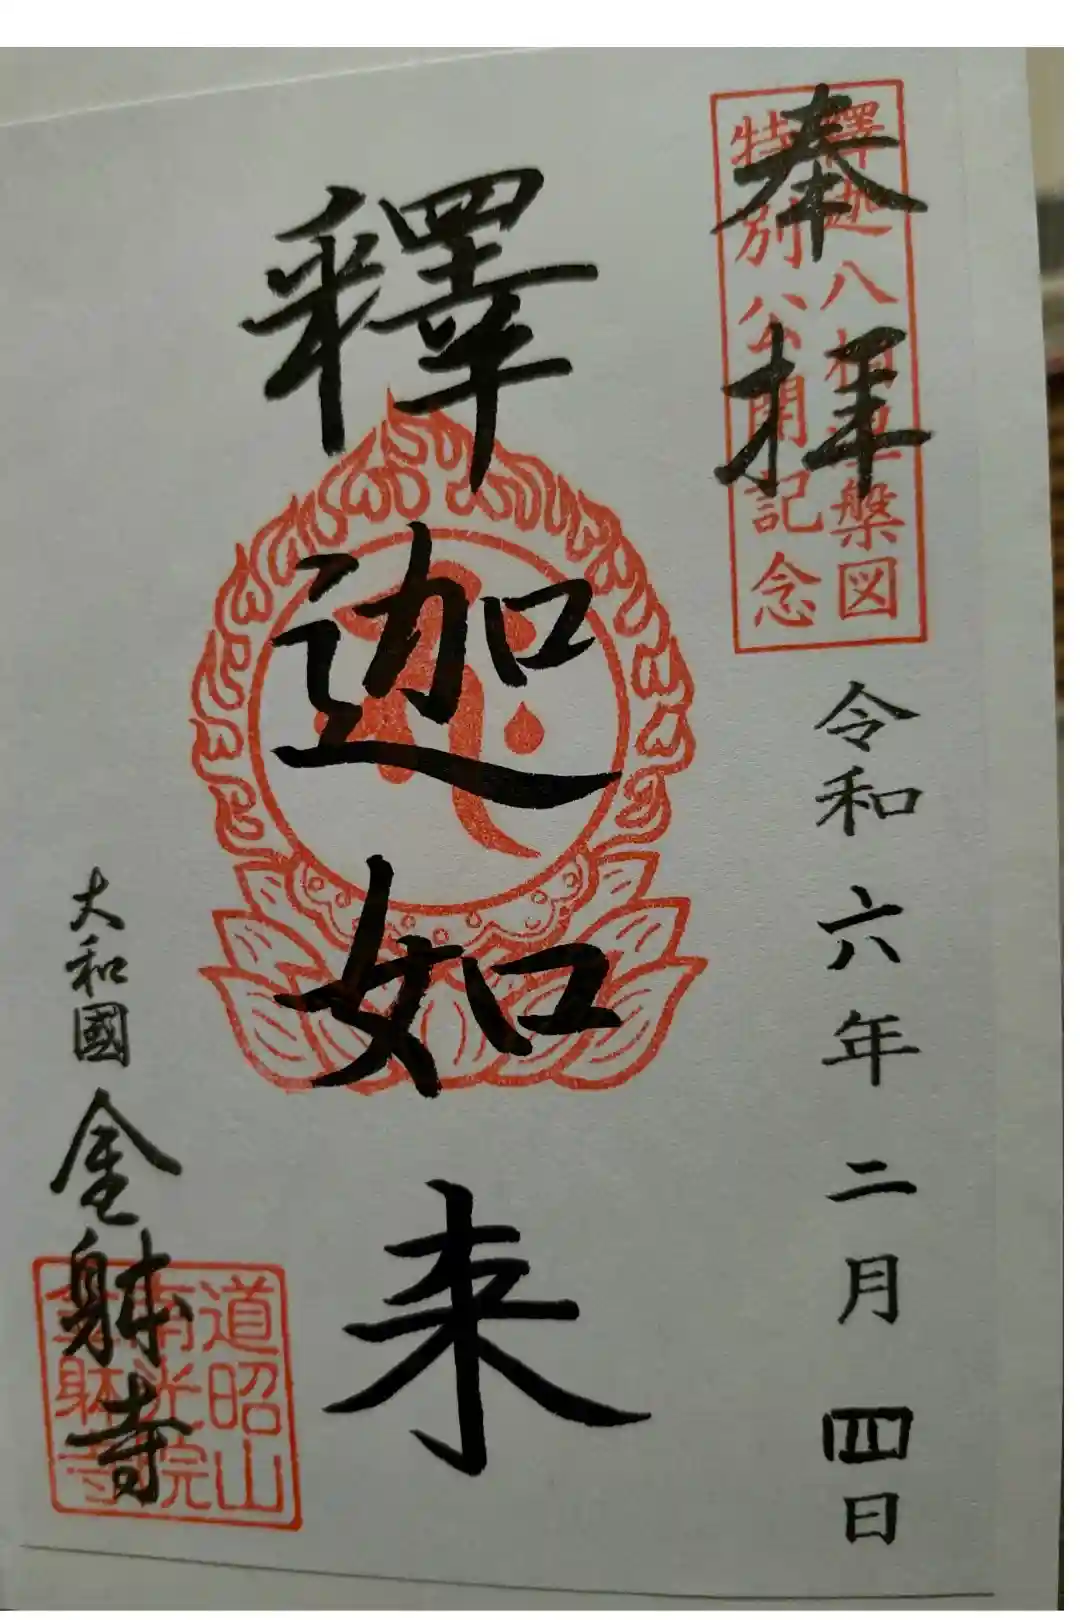 奉拝
釋迦八相涅槃図
特別公開記念
令和六年二月四日
釋迦如来
大和國
金躰寺
道昭山
南光院
金躰寺